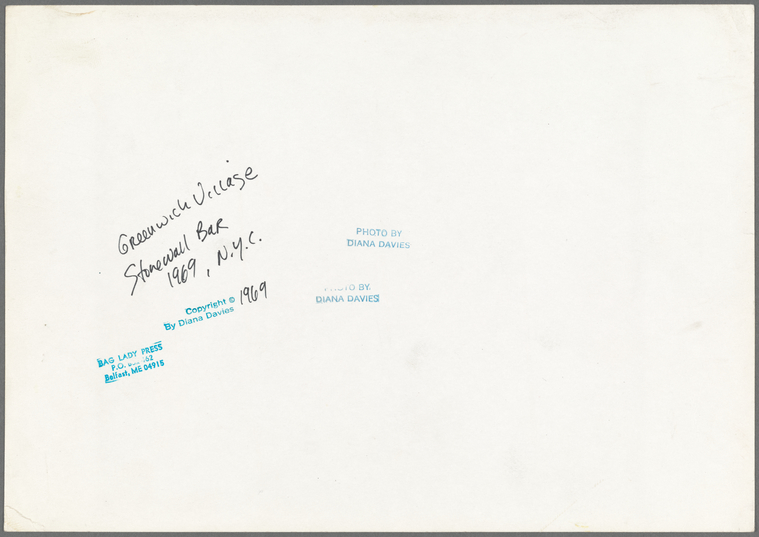 Greenwich Village
Stonewall Bar
1969, N.Y.C.
Copyright © 1969
By Diana Davies
BAG LADY PRESS
P.O.
Belfast, ME 04915
PHOTO BY
DIANA DAVIES
PHOTO BY
DIANA DAVIES